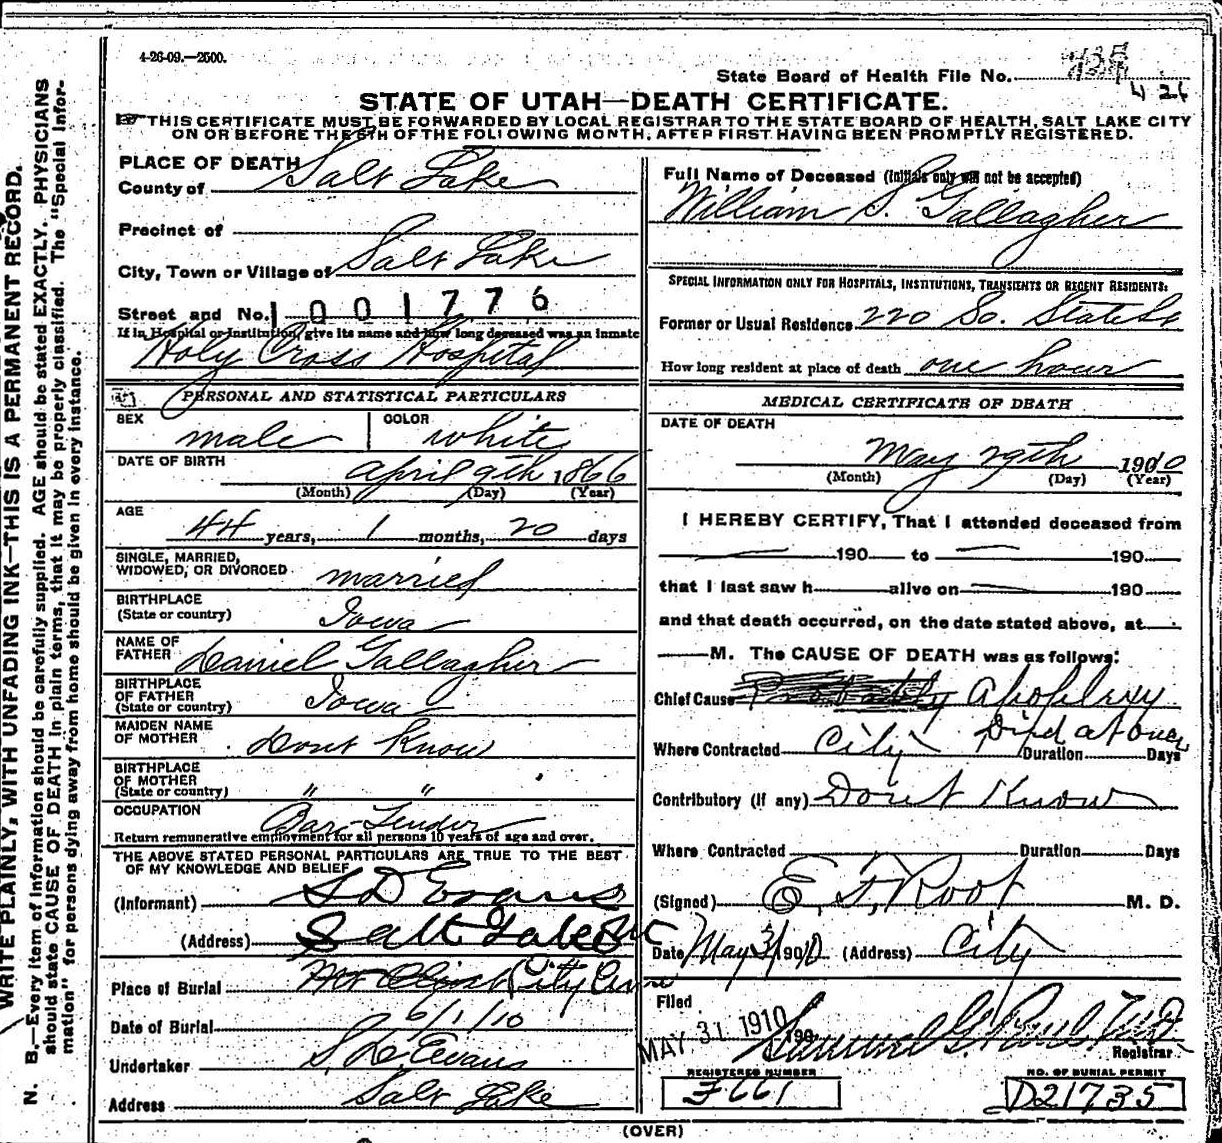 4-26-09.—2500.
State Board of Health File No.
4 26
STATE OF UTAH—DEATH CERTIFICATE.
THIS CERTIFICATE MUST BE FORWARDED BY LOCAL REGISTRAR TO THE STATE BOARD OF HEALTH, SALT LAKE CITY
ON OR BEFORE THE 5TH OF THE FOLLOWING MONTH, AFTER FIRST HAVING BEEN PROMPTLY REGISTERED.
PLACE OF DEATH
County of Salt Lake
Precinct of
City, Town or Village of Salt Lake
Street and No. 1001776
If in Hospital or Institution, give its name and how long deceased was an inmate
Holy Cross Hospital
PERSONAL AND STATISTICAL PARTICULARS
SEX male COLOR white
DATE OF BIRTH April 9th 1866
(Month) (Day) (Year)
AGE
44 years, 1 months, 20 days
SINGLE, MARRIED,
WIDOWED, OR DIVORCED married
BIRTHPLACE
(State or country) Iowa
NAME OF
FATHER Daniel Gallagher
BIRTHPLACE
OF FATHER
(State or country) Iowa
MAIDEN NAME
OF MOTHER Dont Know
BIRTHPLACE
OF MOTHER
(State or country) " "
OCCUPATION Bar-Tender
Return remunerative employment for all persons 10 years of age and over.
THE ABOVE STATED PERSONAL PARTICULARS ARE TRUE TO THE BEST
OF MY KNOWLEDGE AND BELIEF
(Informant) S D Evans
(Address) Salt Lake
Place of Burial Mt Olivet City
Date of Burial 6/1/10
Undertaker S. D. Evans
Address Salt Lake
Full Name of Deceased (Initials only will not be accepted)
William S. Gallagher
SPECIAL INFORMATION ONLY FOR HOSPITALS, INSTITUTIONS, TRANSIENTS OR RECENT RESIDENTS:
Former or Usual Residence 220 So. State St
How long resident at place of death one hour
MEDICAL CERTIFICATE OF DEATH
DATE OF DEATH
May 29th 1910
(Month) (Day) (Year)
I HEREBY CERTIFY, That I attended deceased from
190 to 190
that I last saw h alive on 190
and that death occurred, on the date stated above, at
M. The CAUSE OF DEATH was as follows:
Chief Cause Probably Apoplexy
Died at once
Where Contracted City Duration Days
Contributory (if any) Dont Know
Where Contracted Duration Days
(Signed) E. F. Root M. D.
Date May 31 1910 (Address) City
Filed
MAY 31 1910 190 Samuel G. Paul M.D.
Registrar
REGISTERED NUMBER
F661
NO. OF BURIAL PERMIT
D21735
(OVER)
WRITE PLAINLY, WITH UNFADING INK—THIS IS A PERMANENT RECORD.
N. B.—Every item of information should be carefully supplied. AGE should be stated EXACTLY. PHYSICIANS
should state CAUSE OF DEATH in plain terms, that it may be properly classified. The "Special Infor-
mation" for persons dying away from home should be given in every instance.